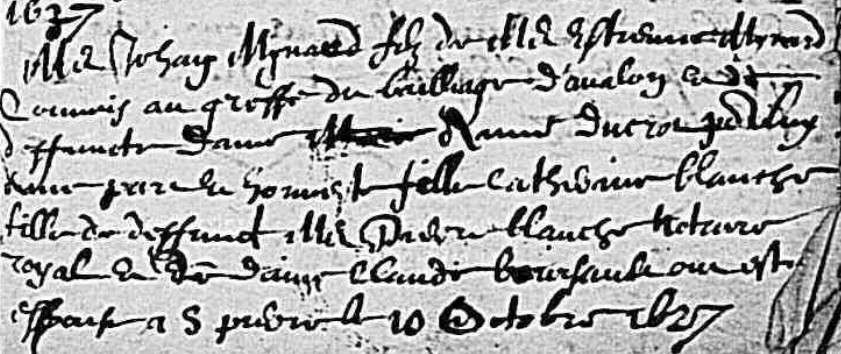 1637
Me Jehan Mynard filz de Me Estienne Mynard
Commis au greffe du bailliage d'avalon et de
deffuncte dame Anne
honneste fille Catherine blanche
fille de deffunct Me Pierre blanche Notaire
royal et de dame Claude ont este
espouse a S pierre le 10 Octobre 1637